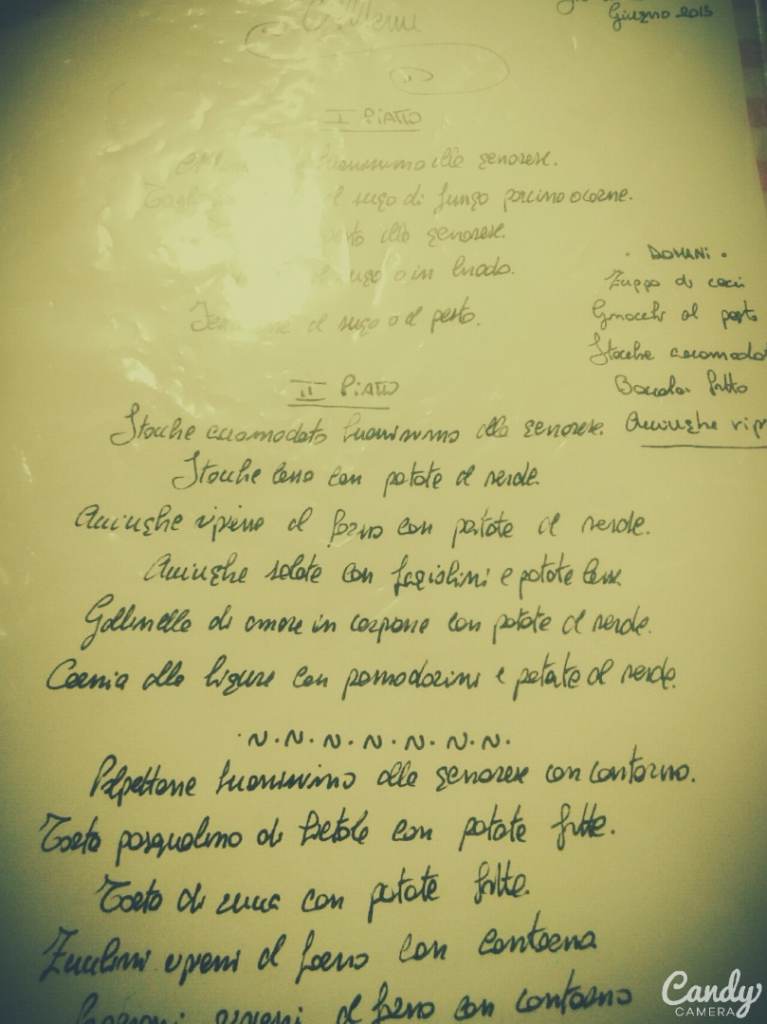 Menu
Giugno 2015
I PIATTO
buonissimo alla genovese.
al sugo di fungo porcino o carne.
alla genovese.
sugo o in brodo.
al sugo o al pesto.
• DOMANI •
Zuppa di ceci
Gnocchi al pesto
Stocche accomodat
Baccalà fritto
Acciughe rip
II PIATTO
Stocche accomodato buonissimo alla genovese.
Stocche lesso con patate al verde.
Acciughe ripiene al forno con patate al verde.
Acciughe salate con fagiolini e patate lesse
Gallinella di mare in carpione con patate al verde.
Cernia alla ligure con pomodorini e patate al verde.
Polpettone buonissimo alla genovese con contorno.
Torta pasqualina di bietole con patate fritte.
Torta di zucca con patate fritte.
Zucchini ripieni al forno con contorno
ripieni al forno con contorno
Candy
CAMERA